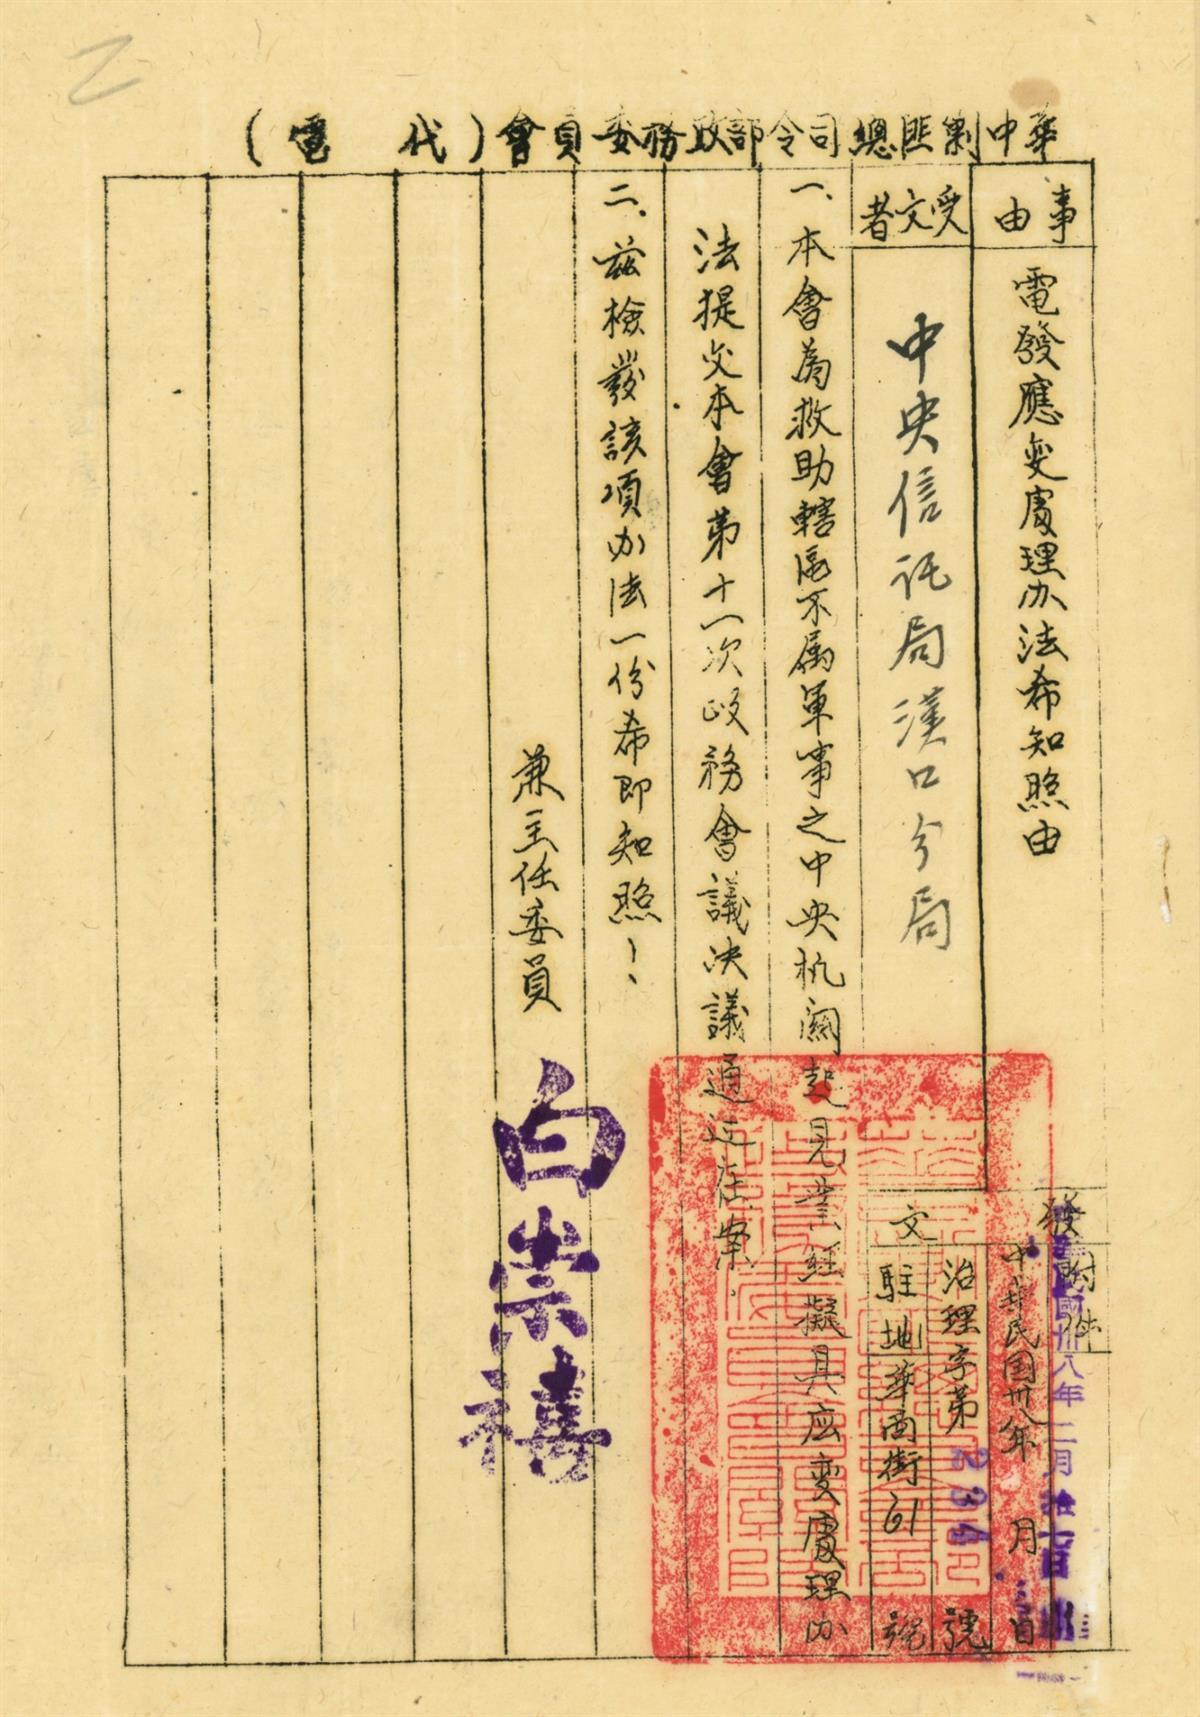 華中剿匪總司令部政務委員會(代電)
事由
電發應变處理办法希知照由
受文者
中央信託局漢口分局
發文
附件
中華民國卅八年二月拾
中華民國卅八年 月 日
治理字第 234 號
駐地華商街61號
一、本會為救助轄區不属軍事之中央机関起見業經擬具应变處理办
法提交本會第十一次政務會議決議通过在案.
二、茲檢發該項办法一份希即知照!
兼主任委員
白崇禧